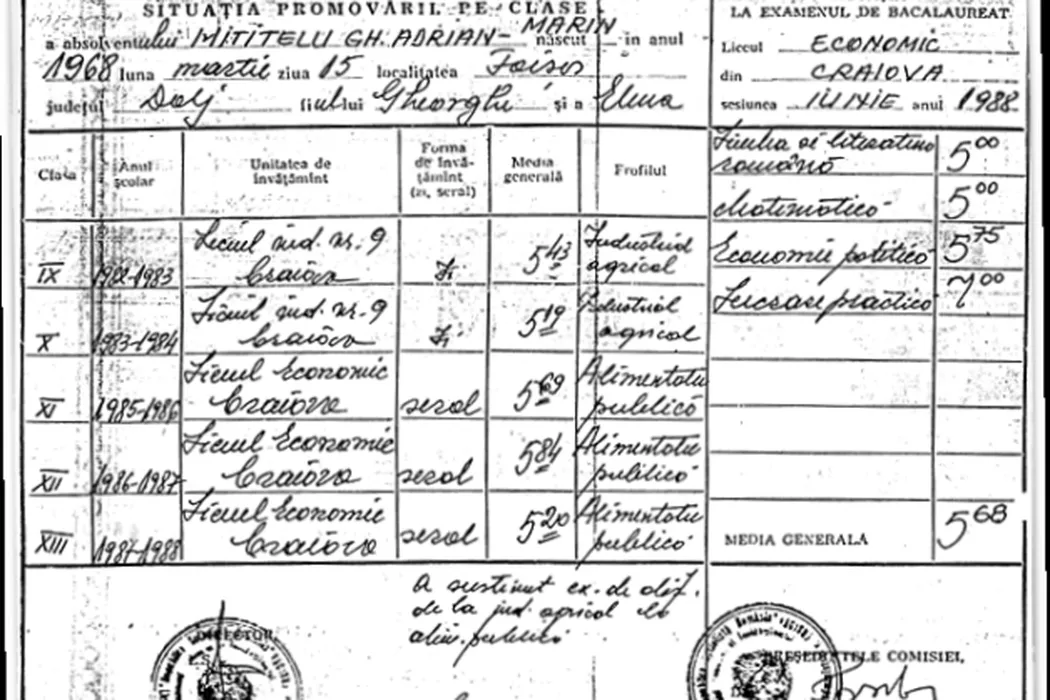 SITUAȚIA PROMOVĂRII PE CLASE
a absolventului MITITELU GH. ADRIAN-MARIN născut în anul
1968 luna martie ziua 15 localitatea
județul Dolj fiul lui Gheorghe și a Elena
Clasa Anul școlar Unitatea de învățămînt Forma de învățămînt (zi, seral) Media generală Profilul
IX 1982-1983 Liceul ind. nr. 9 Craiova zi 5 43 Industrial agricol
X 1983-1984 Liceul ind. nr. 9 Craiova zi 5 19 Industrial agricol
XI 1985-1986 Liceul Economic Craiova seral 5 69 Alimentatie publică
XII 1986-1987 Liceul Economic Craiova seral 5 84 Alimentatie publică
XIII 1987-1988 Liceul Economic Craiova seral 5 20 Alimentatie publică
A susținut ex. de dif.
de la ind. agricol la
alim. publică
DIRECTOR,
LA EXAMENUL DE BACALAUREAT
Liceul ECONOMIC
din CRAIOVA
sesiunea IUNIE anul 1988
Limba și literatura română 5 00
Matematică 5 00
Economie politică 5 75
Lucrare practică 7 00
MEDIA GENERALĂ 5 68
PREȘEDINTELE COMISIEI,